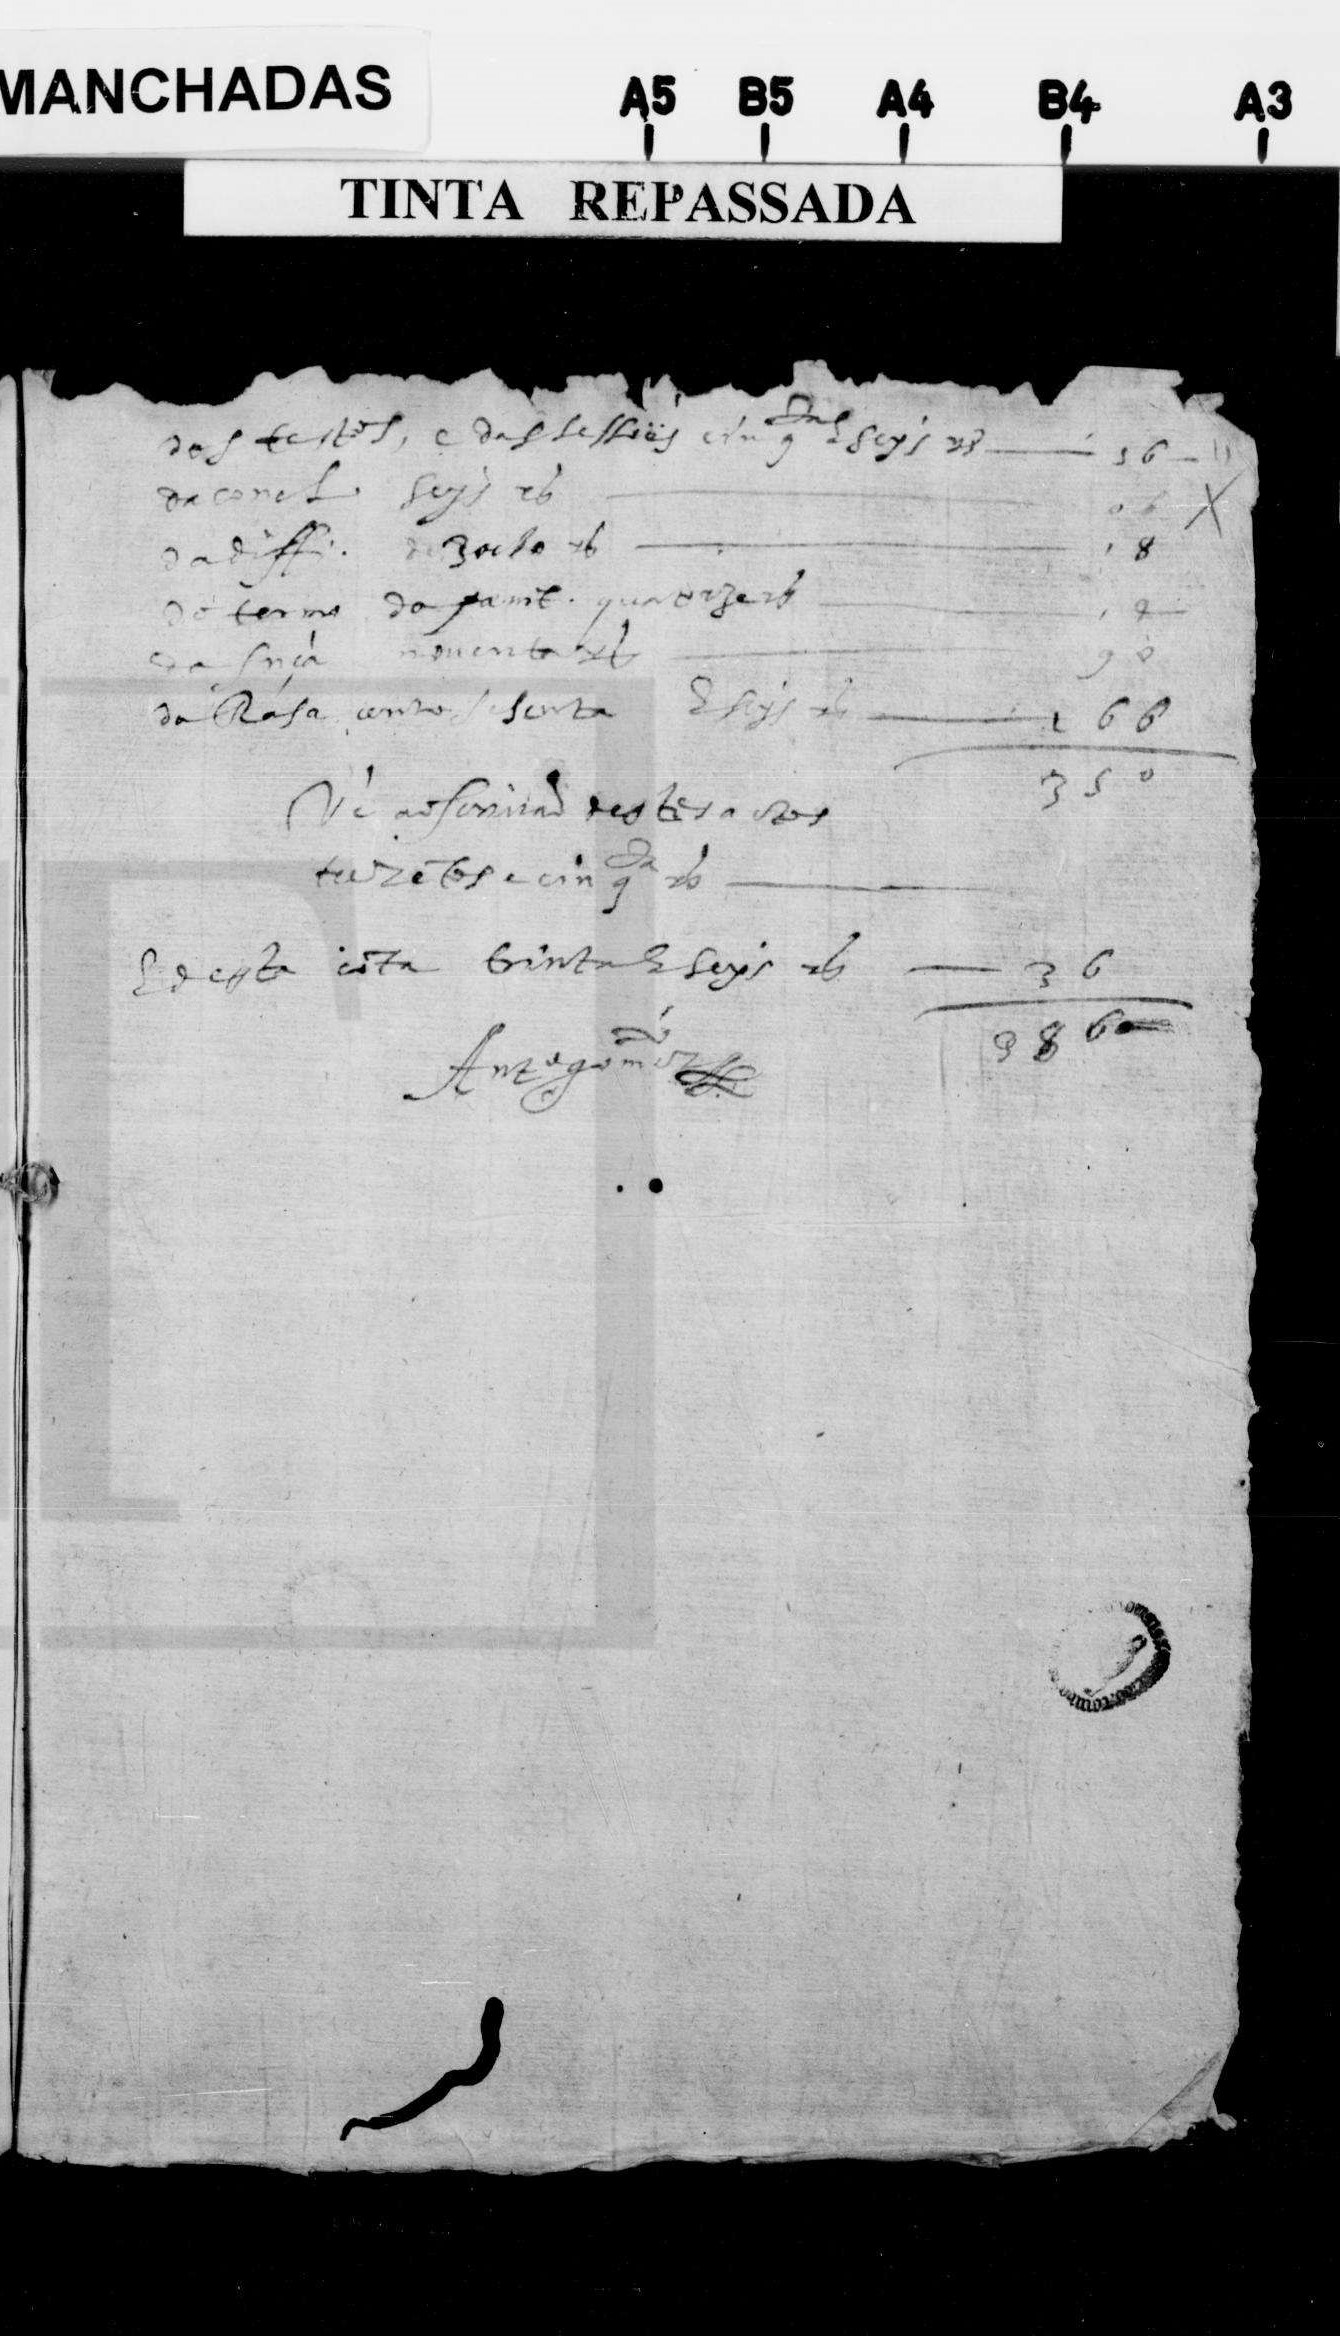 MANCHADAS
A5 B5 A4 B4 A3
TINTA REPASSADA
das testas, e das sessões cinqta e seys rs 56
da concl. seys rs 06
da diffi. dezocto rs 18
do termo da penit. quatorze rs 14
da snça noventa rs 90
da Rasa cento sesenta e seys rs 166
350
Vé ao scrivão destes autos
trezẽtos e cinqta rs
E desta cõta trinta e seys rs 36
386
Anto gomez